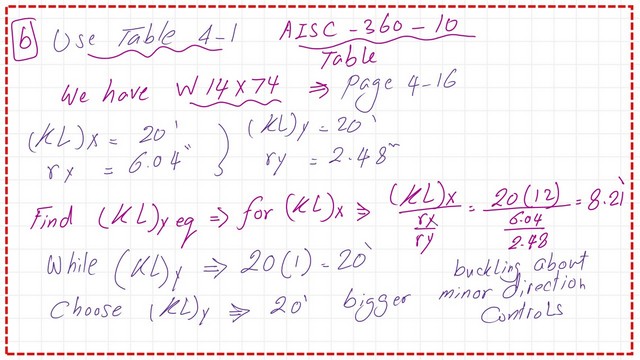 b Use Table 4-1 AISC-360-10
Table
We have W14x74 ⇒ Page 4-16
(KL)x = 20' } (KL)y = 20'
rx = 6.04" ry = 2.48"
Find (KL)y eq ⇒ for (KL)x ⇒ (KL)x / (rx/ry) = 20(12) / (6.04/2.48) = 8.21'
While (KL)y ⇒ 20(1) = 20'
Choose (KL)y ⇒ 20' bigger
buckling about
minor direction
Controls